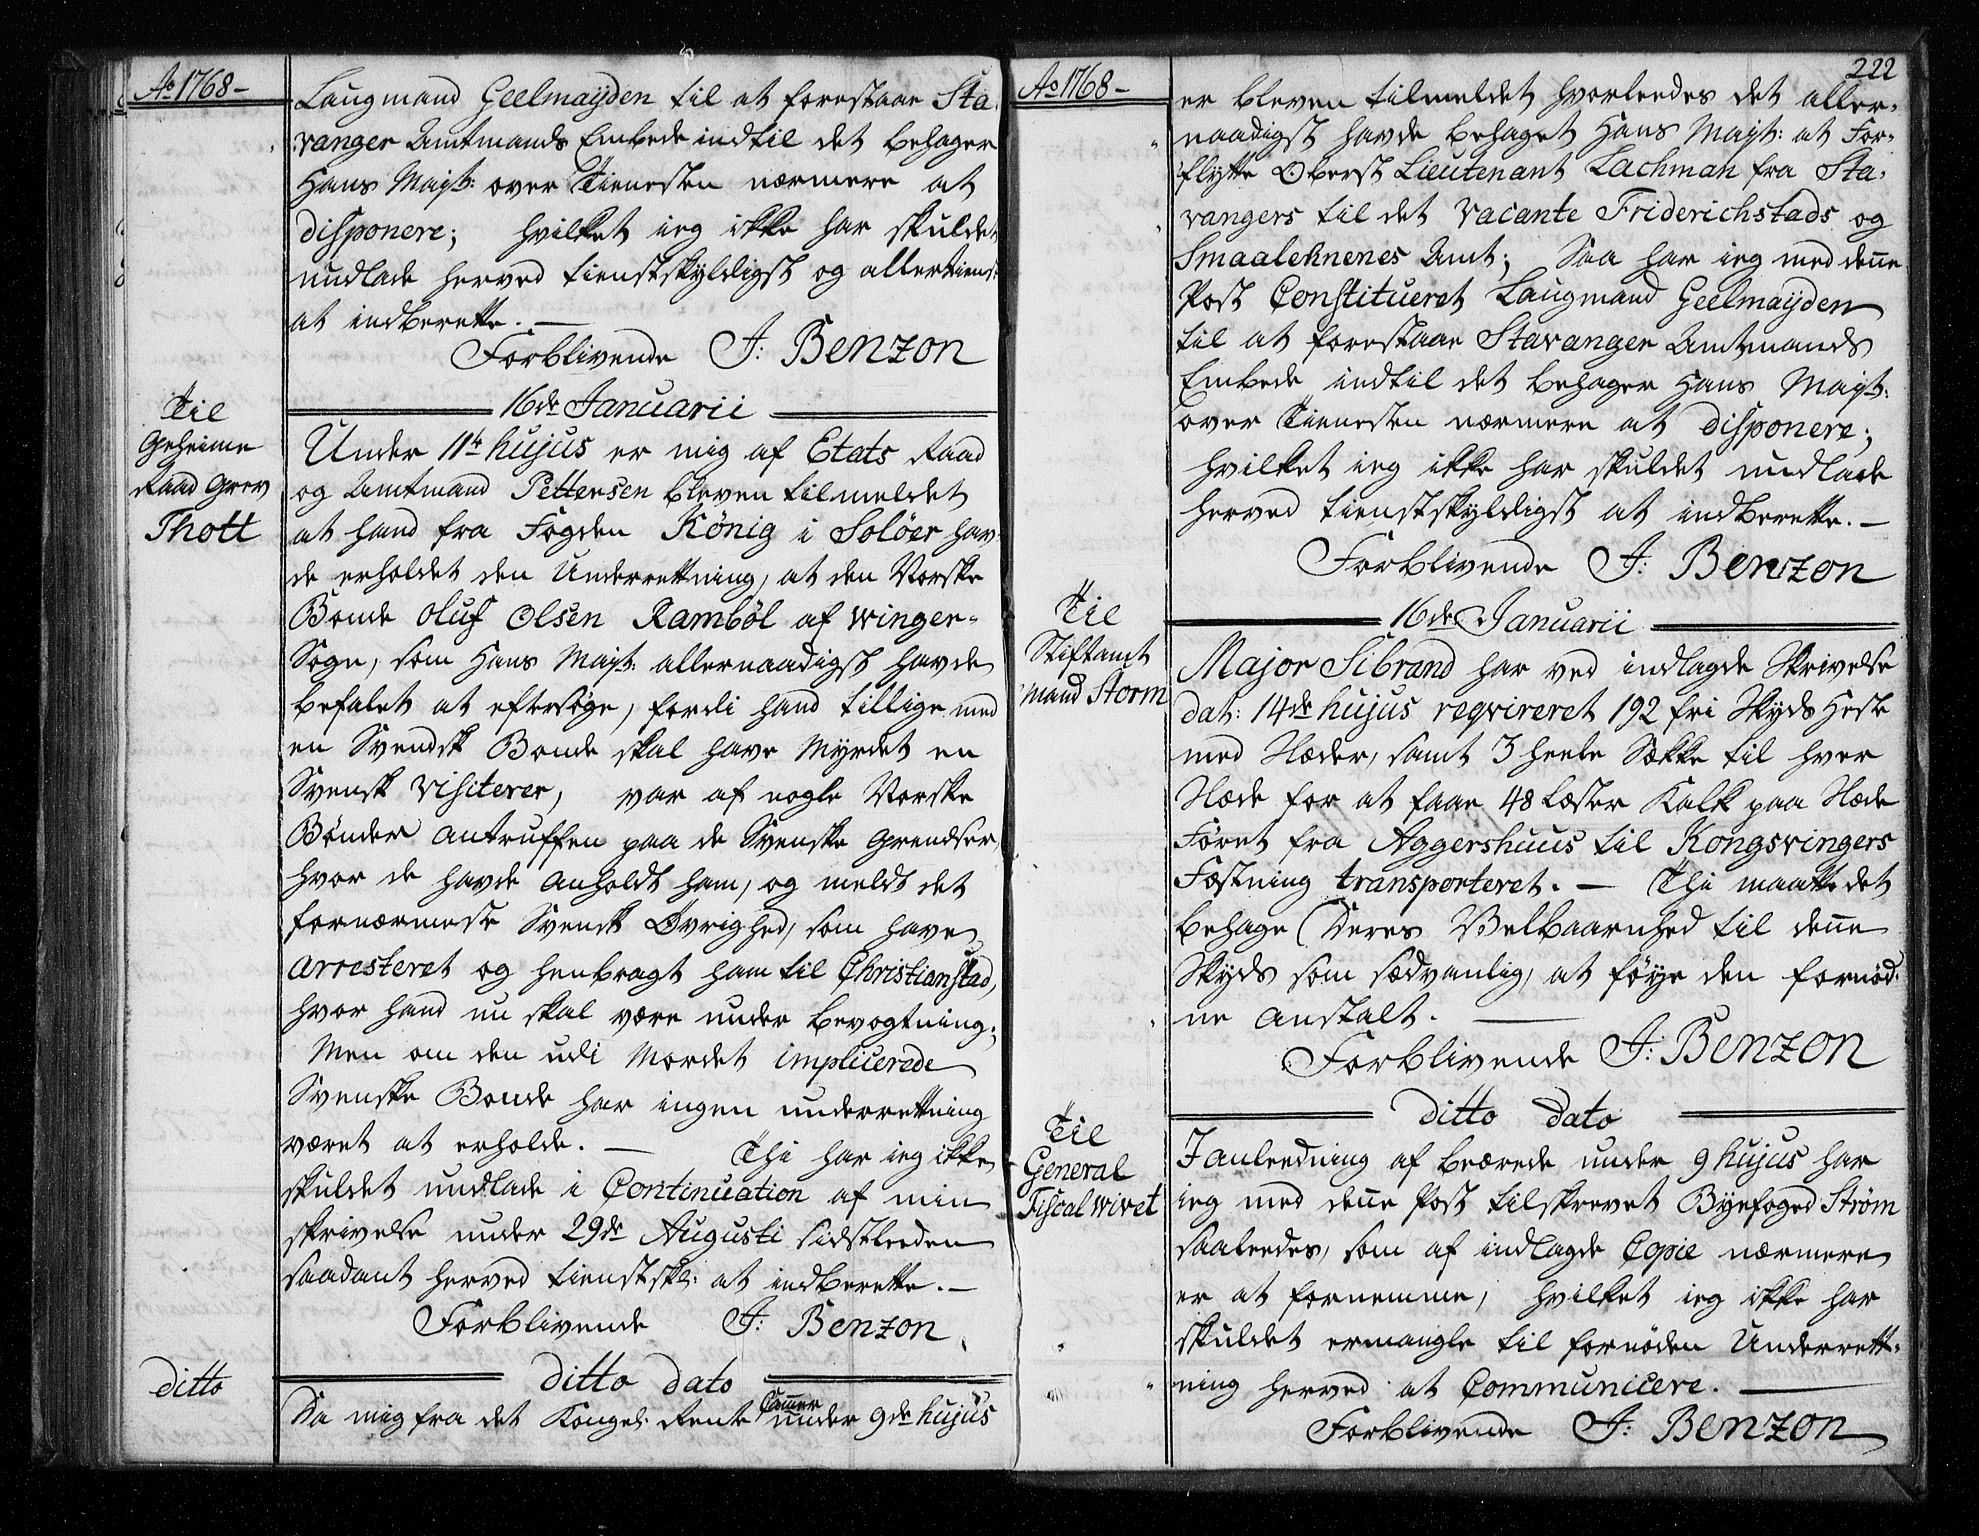 Ao 1768-
Laugmand Geelmaÿden til at forestaae Sta-
vanger Amtmands Embede indtil det behager
Hans Mayt: over Tienesten nærmere at
disponere; hvilket ieg ikke har skuldet
undlade herved tienstskyldigst og allertienst
at indberette. —
Forblivende J: Benzon
16de Januarii
Til
Geheime
Raad Grev
Thott
Under 11te hujus er mig af Etats Raad
og Amtmand Pettersen bleven tilmeldet
at hand fra Fogden König i Solöer hav-
de erholdet den Underretning, at den Norske
Bonde Oluf Olsen Ramböl af Winger-
Sogn, som Hans Mayt: allernaadigst havde
befalet at eftersøge, fordi hand tillige med
en Svendsk Bonde skal have Myrdet en
Svensk Visiterer, var af nogle Norske
Bønder antruffen paa de Svenske Grendser,
hvor de havde anholdt ham, og meldt det
fornærmeste Svensk Øvrighed, som have
arresteret og henbragt ham til Christianstad,
hvor hand nu skal være under bevogtning;
Men om den udi Mordet implicerede
Svenske Bonde har ingen underretning
været at erholde. — Thi har ieg ikke
skuldet undlade i Continuation af min
skrivelse under 29de Augusti sidstleeden
saadant herved tienstskl: at indberette. —
Forblivende J: Benzon
ditto dato
ditto
Da mig fra det Kongel: Rente Camer under 9de hujus
222
Ao 1768-
er bleven tilmeldet hvorledes det aller-
naadigst havde behaget Hans Mayt: at For-
flytte Oberst Lieutenant Lachman fra Sta-
vangers til det vacante Friderichstads og
Smaalehnenes Amt; Saa har ieg med denne
Post Constitueret Laugmand Geelmaÿden
til at forestaae Stavanger Amtmands
Embede indtil det behager Hans Mayt:
over Tienesten nærmere at disponere;
hvilket ieg ikke har skuldet undlade
herved tienstskyldigst at indberette. —
Forblivende J: Benzon
16de Januarii
Til
Stiftamt
mand Storm
Major Sibrand har ved indlagde Skrivelse
dat: 14de hujus reqvireret 192 fri Skyds Heste
med Slæder, samt 3 heele Sække til hver
Slæde for at faae 48 Læster Kalk paa Slæde
Føret fra Aggershuus til Kongsvingers
Fæstning transporteret. — Thi maatte det
behage Deres Velbaarenhed til denne
Skyds som sædvanlig, at føye den fornød-
ne Anstalt. —
Forblivende J: Benzon
ditto dato
Til
General
Fiscal Wivet
I anleedning af beærede under 9 hujus har
ieg med denne Post tilskrevet Byefoged Strøm
saaleedes, som af indlagde Copie nærmere
er at fornemme, hvilket ieg ikke har
skuldet ermangle til fornøden Underrett-
ning herved at Communicere. —
Forblivende J: Benzon